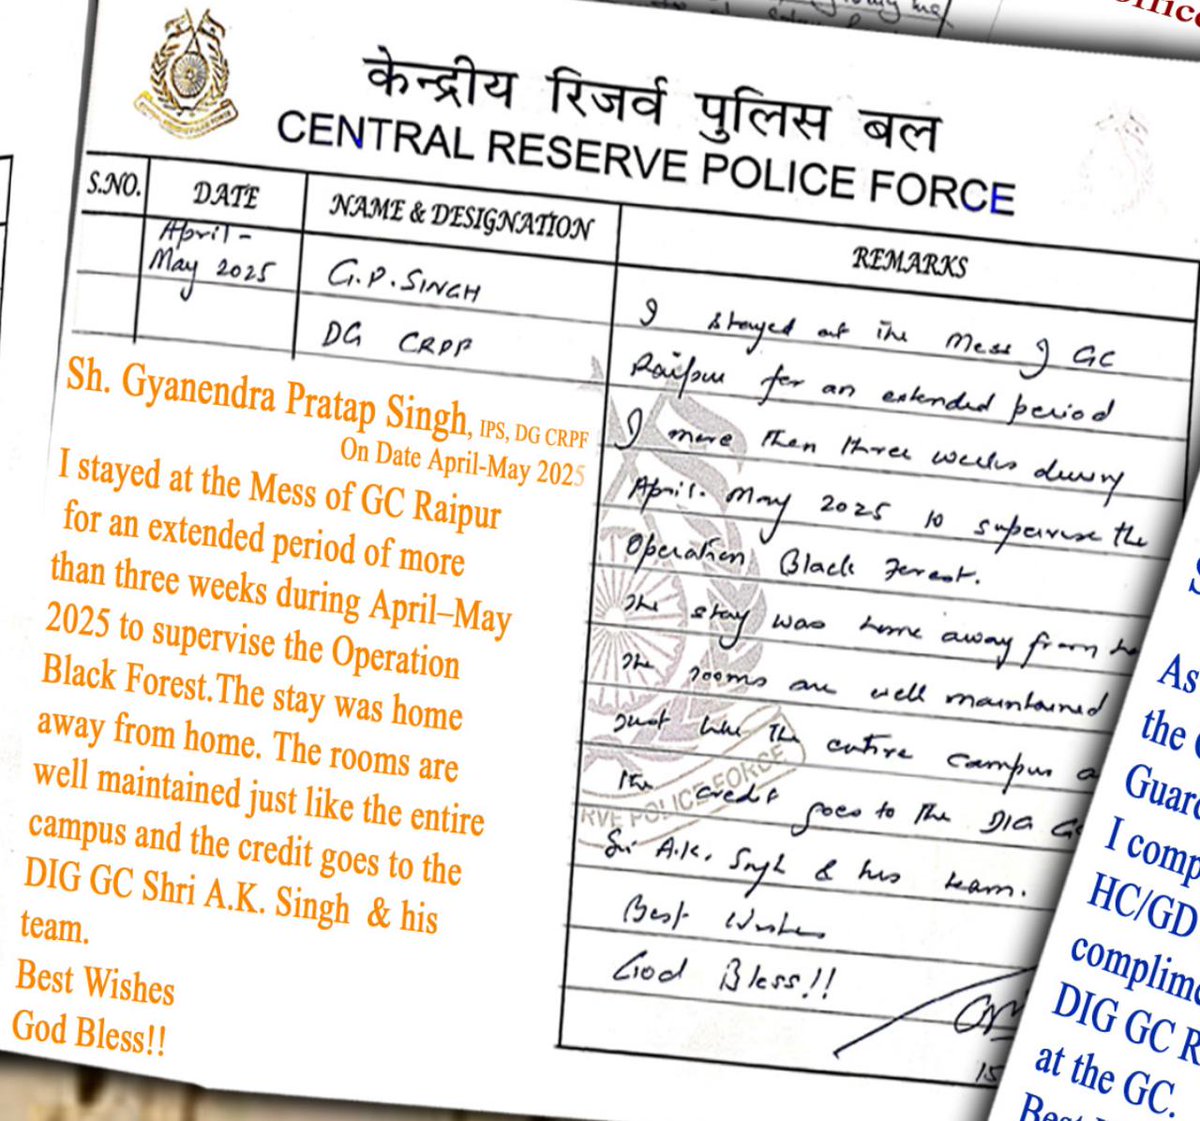 केन्द्रीय रिजर्व पुलिस बल
CENTRAL RESERVE POLICE FORCE
S.NO.
DATE
NAME & DESIGNATION
REMARKS
April-
May 2025
G.P. SINGH
DG CRPF
I stayed at the Mess of GC
Raipur for an extended period
of more than three weeks during
April-May 2025 to supervise the
Operation Black Forest.
The stay was home away from
The rooms are well maintained
just like the entire campus
the credit goes to the DIG
Sri A.K. Singh & his team.
Best Wishes
God Bless!!
15
Sh. Gyanendra Pratap Singh, IPS, DG CRPF
On Date April-May 2025
I stayed at the Mess of GC Raipur
for an extended period of more
than three weeks during April–May
2025 to supervise the Operation
Black Forest.The stay was home
away from home. The rooms are
well maintained just like the entire
campus and the credit goes to the
DIG GC Shri A.K. Singh & his
team.
Best Wishes
God Bless!!
RVE POLICE FORCE
As
the
I
HC/GD
DIG GC
at the GC.